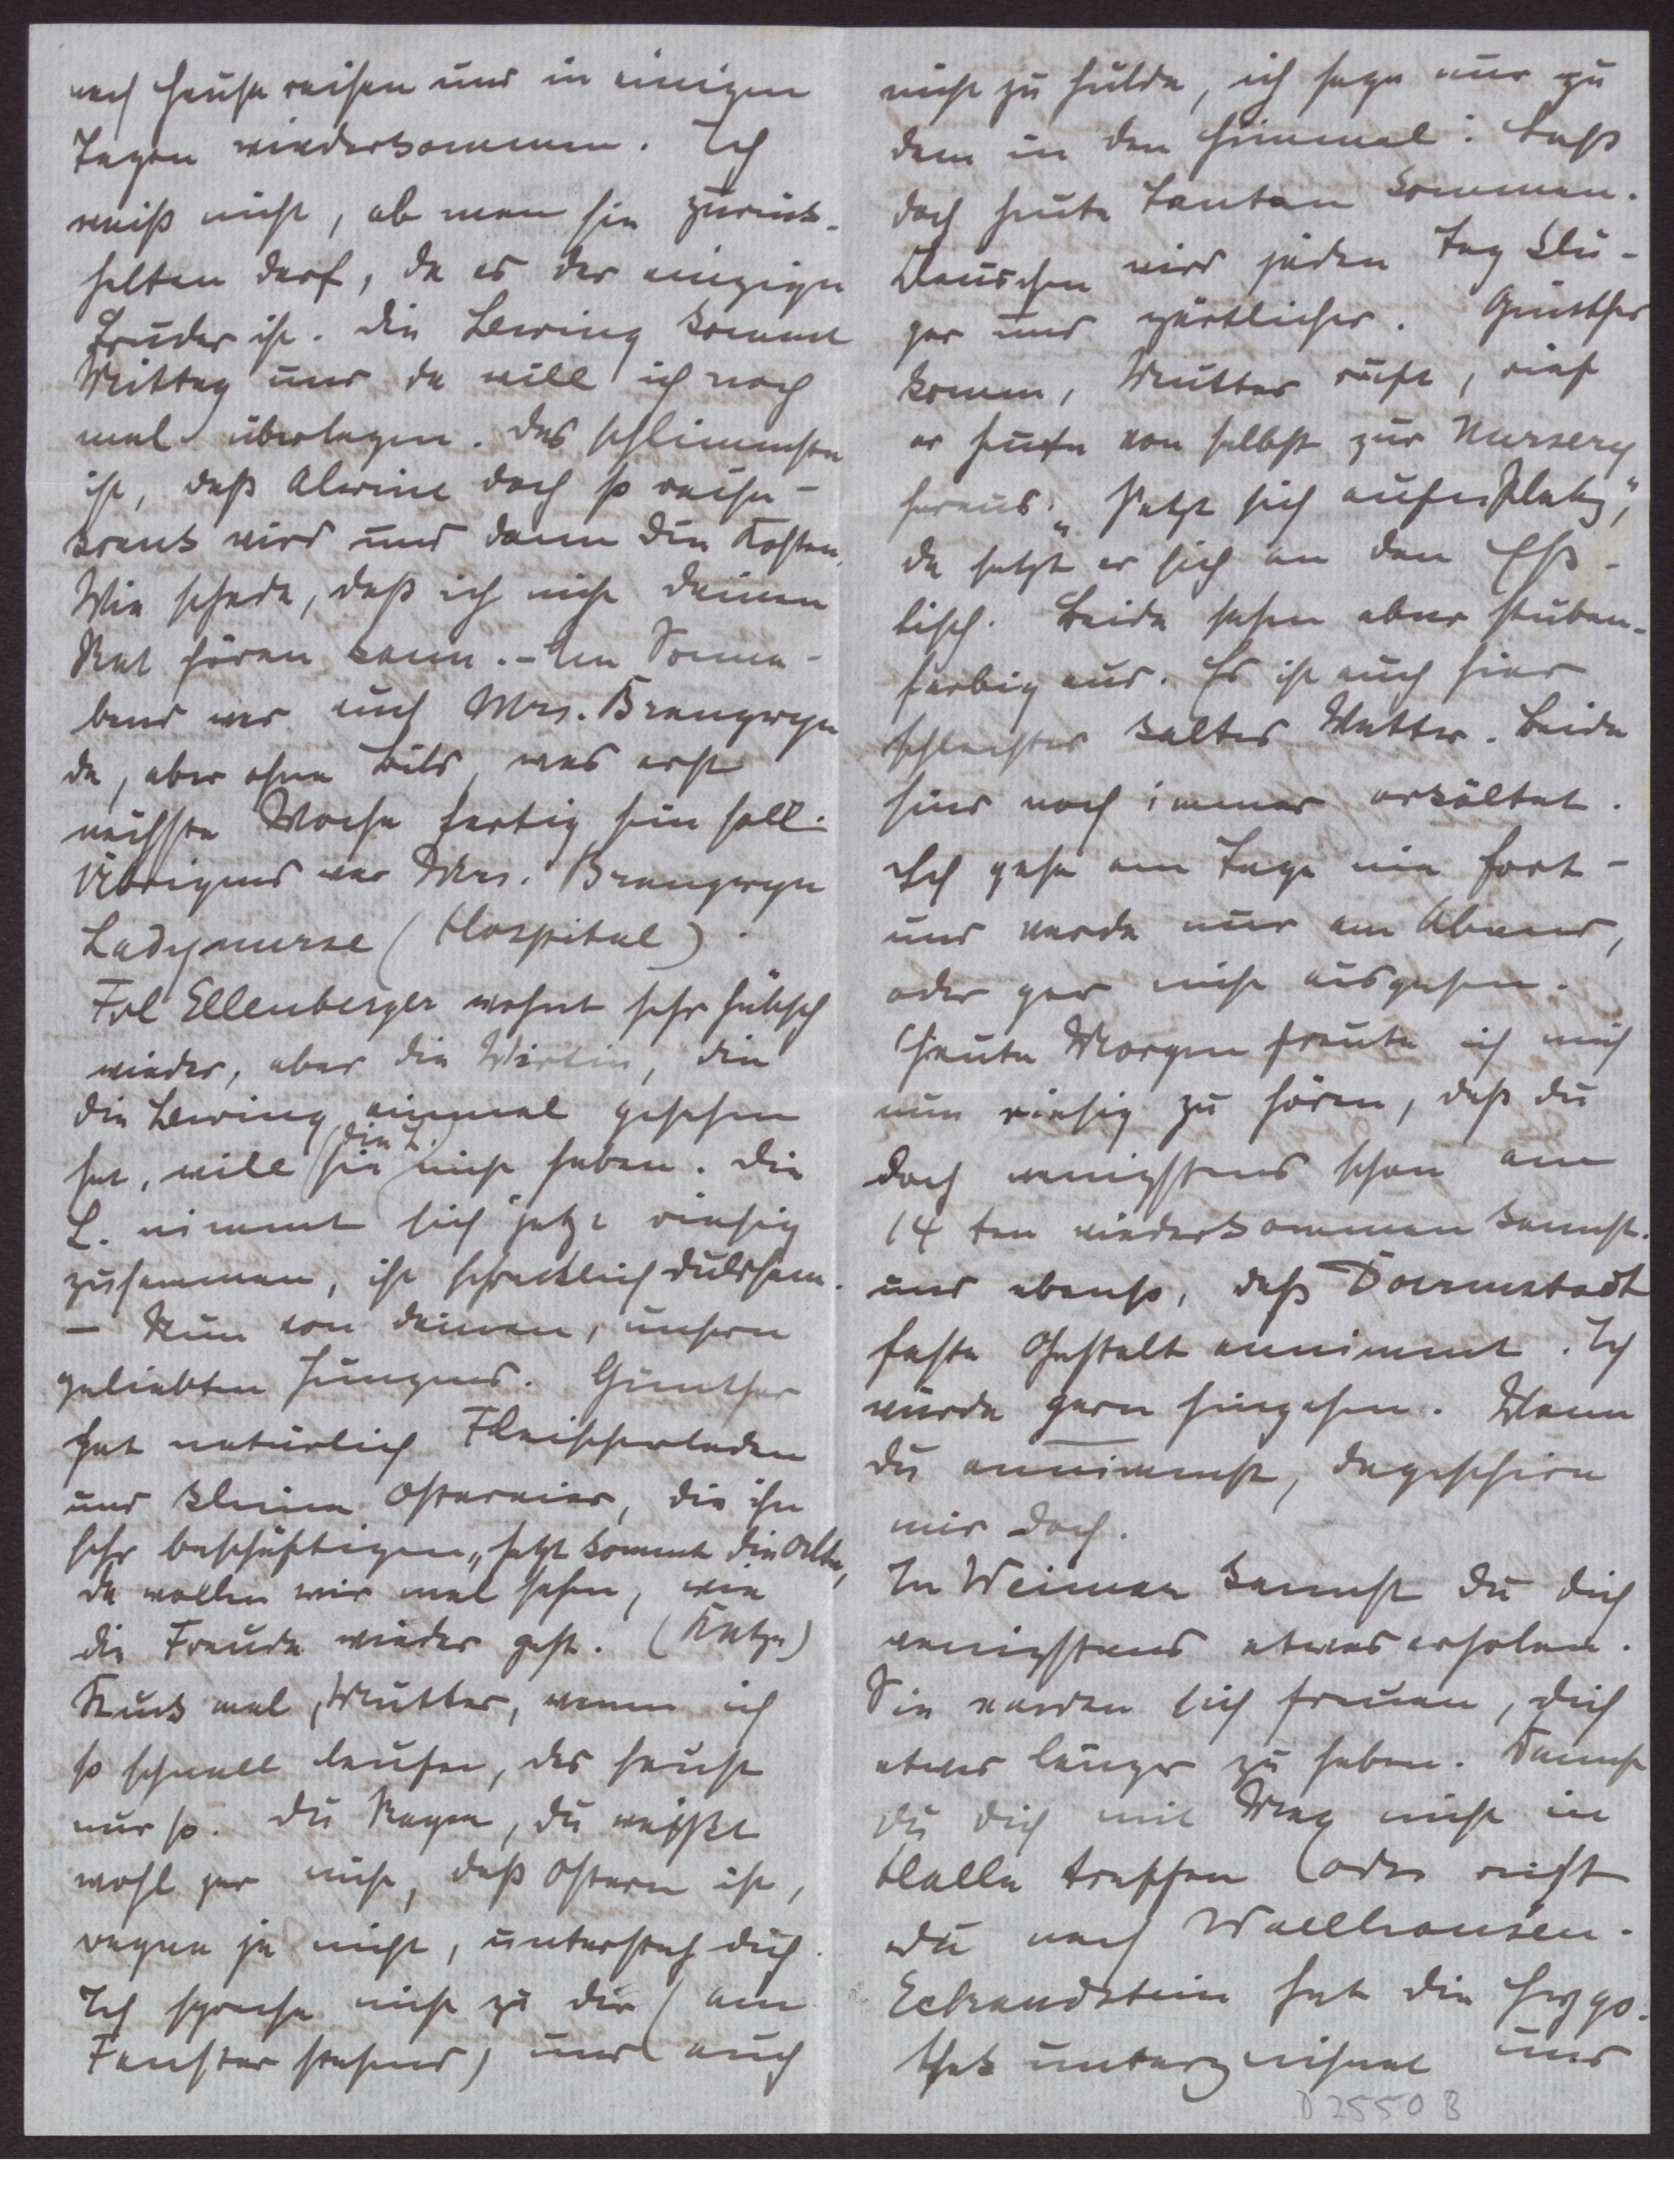 nach Hause reisen und in einigen
Tagen wiederkommen. Ich
weiß nicht, ob man sie zurück-
halten darf, da es der einzige
Bruder ist. Die Lewing kommt
Mittag und da will ich noch
mal überlegen. Das schlimmste
ist, daß Alwine doch so reise-
krank wird und dann die Kosten.
Wie schade, daß ich nicht deinen
Rat hören kann. – Am Sonna-
bend war auch Mrs. Brangwyn
da, aber ohne Bild, was erst
nächste Woche fertig sein soll.
Übrigens war Mrs. Brangwyn
Ladynurse (Hospital).
Frl Ellenberger wohnt sehr hübsch
wieder, aber die Wirtin, die
die Lewing einmal gesehen
hat, will sie (die L.) nicht haben. Die
L. nimmt sich jetzt riesig
zusammen, ist schrecklich duldsam.
– Nun von deinen, unsern
geliebten Jungens. Günther
hat natürlich Fleischerladen
und kleine Ostereier, die ihn
sehr beschäftigen „jetzt kommt die Alte,
da wollen wir mal sehen, wie
die Freude wieder geht. (Katze)
Kuck mal, Mutter, wenn ich
so schnell laufe, das saust
nur so. Du Regen, du weißt
wohl gar nicht, daß Ostern ist,
regne ja nicht, untersteh dich.
Ich spreche nicht zu dir (am
Fenster stehend) und auch
nicht zu Hulda, ich sage nur zu
dem in den Himmel: Laß
doch heute Tanten kommen.
Klauschen wird jeden Tag klü-
ger und zärtlicher. Günther
komm, Mutter ruft, rief
er heute von selbst zur Nursery
heraus. „Setzt sich aufn Platz",
da setzt er sich an den Eß-
tisch. Beide sehen aber stuben-
farbig aus. Es ist auch hier
schlechtes kaltes Wetter. Beide
sind noch immer erkältet.
Ich gehe am Tage nie fort –
und werde nur am Abend,
oder gar nicht ausgehen.
Heute Morgen freute ich mich
nun riesig zu hören, daß du
doch wenigstens schon am
14 ten wiederkommen kannst.
und ebenso, daß Darmstadt
feste Gestalt annimmt. Ich
würde gern hingehen. Wenn
du annimmst, depeschire
mir doch.
In Weimar kannst du dich
wenigstens etwas erholen.
Sie werden sich freuen, dich
etwas länger zu haben. Kannst
du dich mit Max nicht in
Halle treffen (oder reist
du nach Wallhausen.
Eckardstein hat die Hypo-
thek unterzeichnet und
D 2550 B